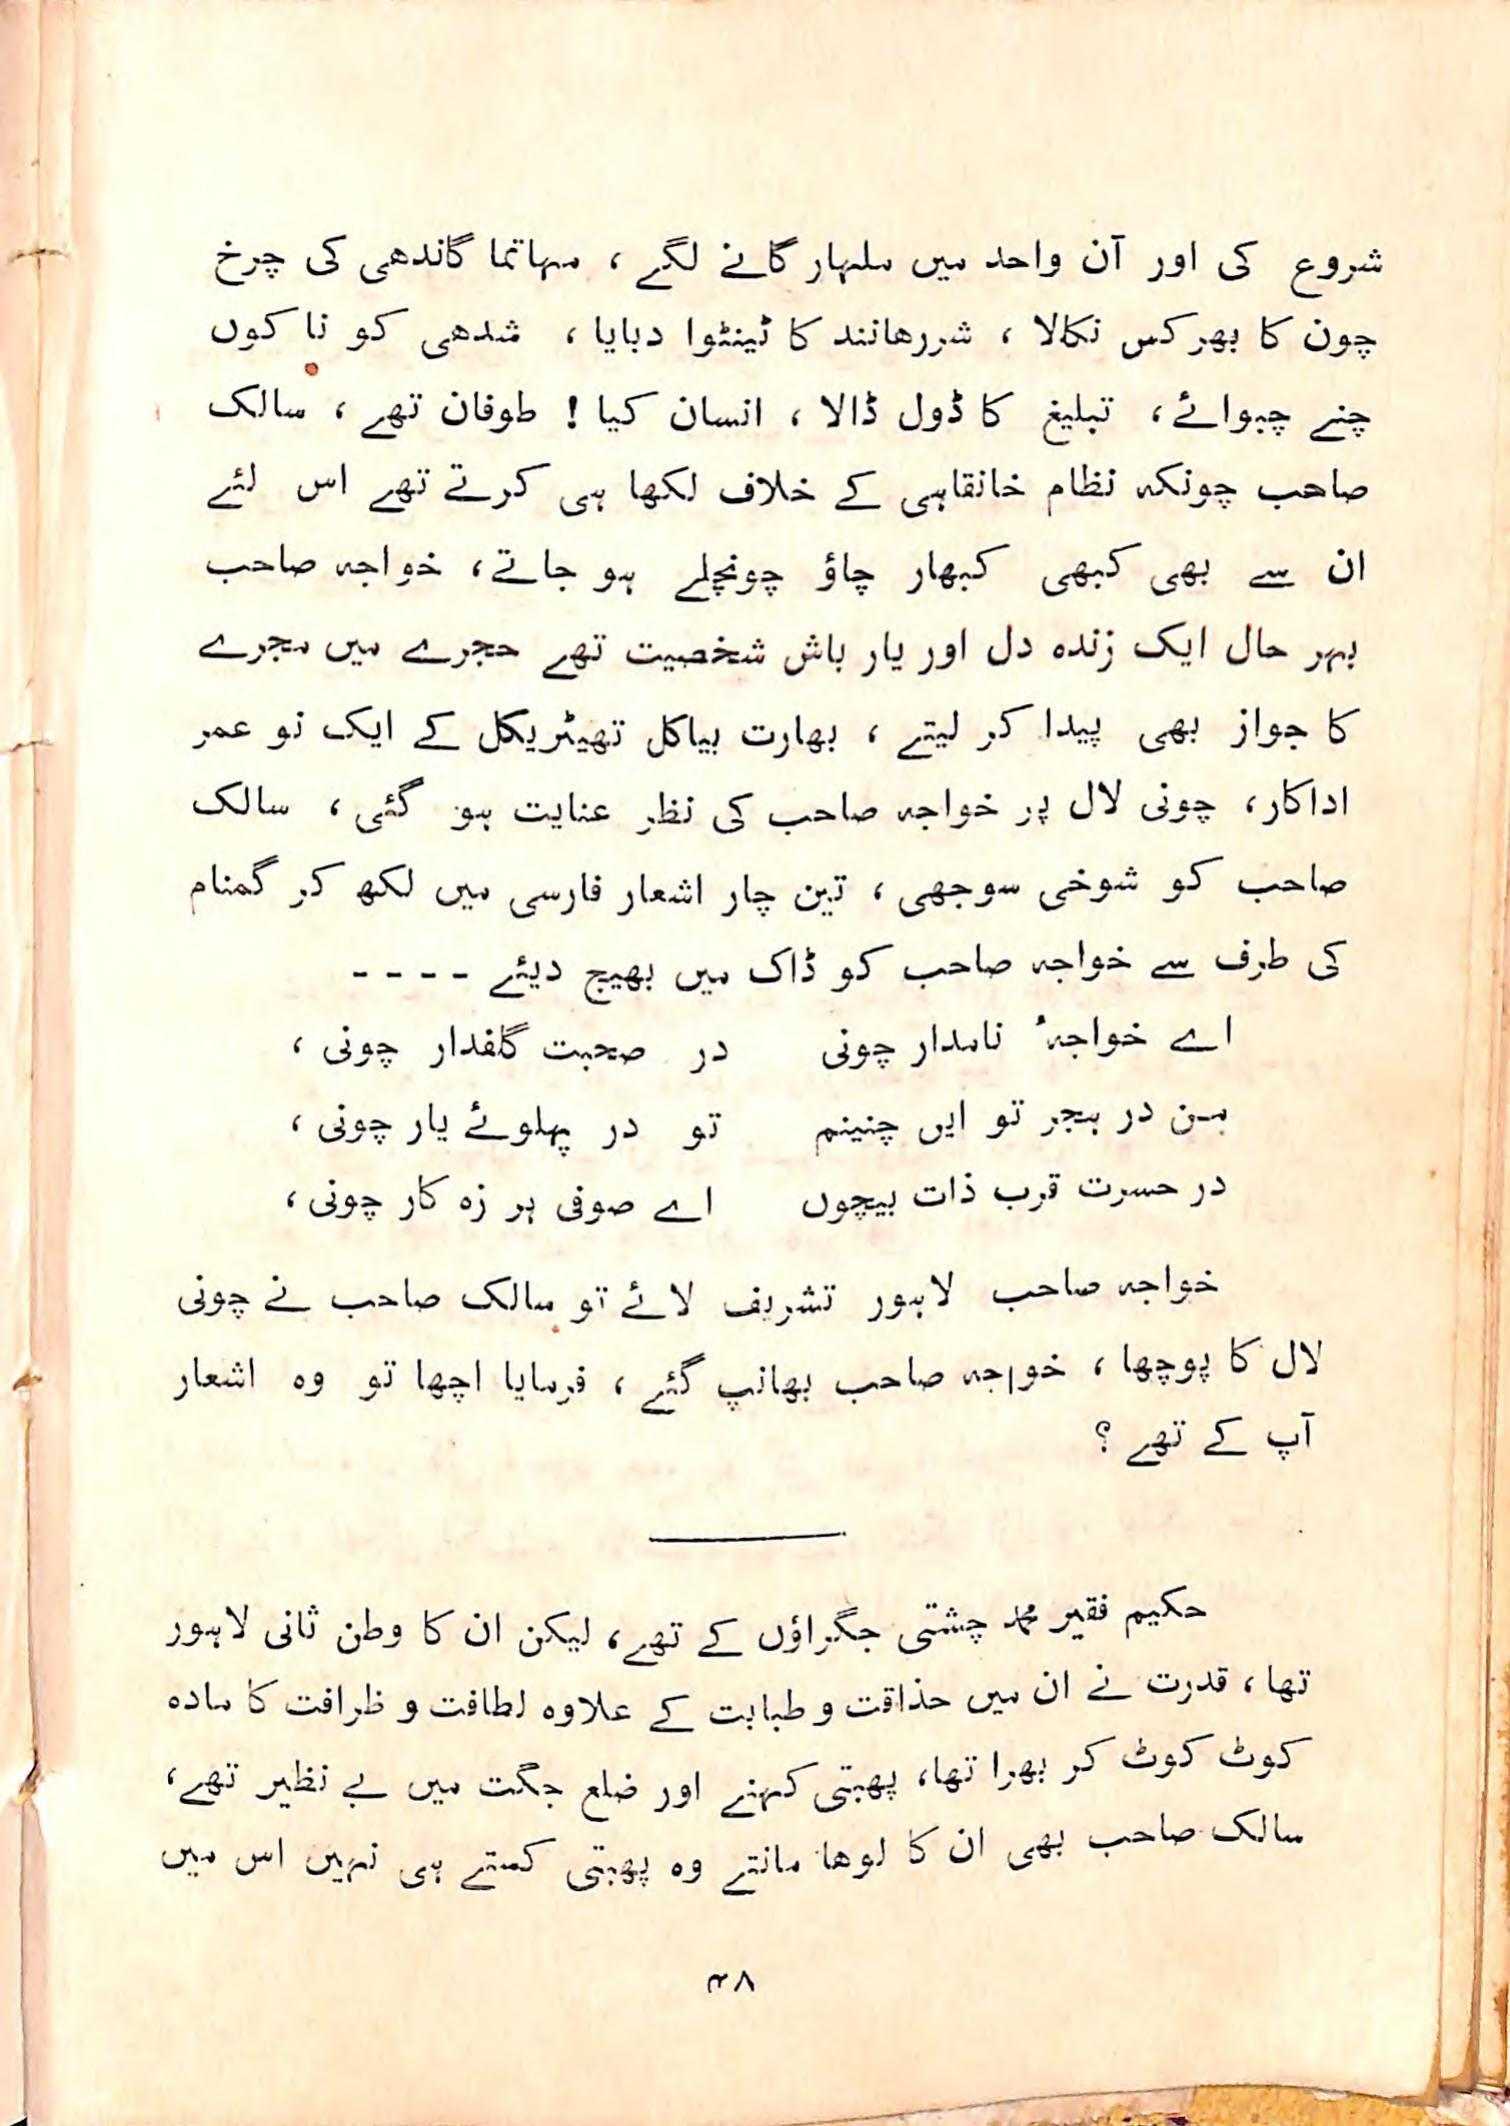 شروع کی اور آن واحد میں ملہار گانے لگے ، مہاتما گاندھی کی چرخ
چون کا بھرکس نکالا ، شررھانند کا ٹینٹوا دبایا ، شدھی کو نا کوں
چنے چبوائے ، تبلیغ کا ڈول ڈالا ، انسان کیا ! طوفان تھے ، سالک
صاحب چونکہ نظام خانقاہی کے خلاف لکھا ہی کرتے تھے اس لئے
ان سے بھی کبھی کبھار چاؤ چونچلے ہو جاتے ، خواجہ صاحب
بہر حال ایک زندہ دل اور یار باش شخصیت تھے حجرے میں مجرے
کا جواز بھی پیدا کر لیتے ، بھارت بیاکل تھیٹریکل کے ایک نو عمر
اداکار ، چونی لال پر خواجہ صاحب کی نظر عنایت ہو گئی ، سالک
صاحب کو شوخی سوجھی ، تین چار اشعار فارسی میں لکھ کر گمنام
کی طرف سے خواجہ صاحب کو ڈاک میں بھیج دیئے - - - -
اے خواجۂ نامدار چونی در صحبت گلفدار چونی ،
من در ہجر تو ایں چنینم تو در پہلوئے یار چونی ،
در حسرت قرب ذات بیچوں اے صوفی ہر زہ کار چونی ،
خواجہ صاحب لاہور تشریف لائے تو سالک صاحب نے چونی
لال کا پوچھا ، خواجہ صاحب بھانپ گئے ، فرمایا اچھا تو وہ اشعار
آپ کے تھے ؟
حکیم فقیر محمد چشتی جگراؤں کے تھے ، لیکن ان کا وطن ثانی لاہور
تھا ، قدرت نے ان میں حذاقت و طبابت کے علاوہ لطافت و ظرافت کا مادہ
کوٹ کوٹ کر بھرا تھا ، پھبتی کہنے اور ضلع جگت میں بے نظیر تھے ،
سالک صاحب بھی ان کا لوھا مانتے وہ پھبتی کستے ہی نہیں اس میں
۳۸